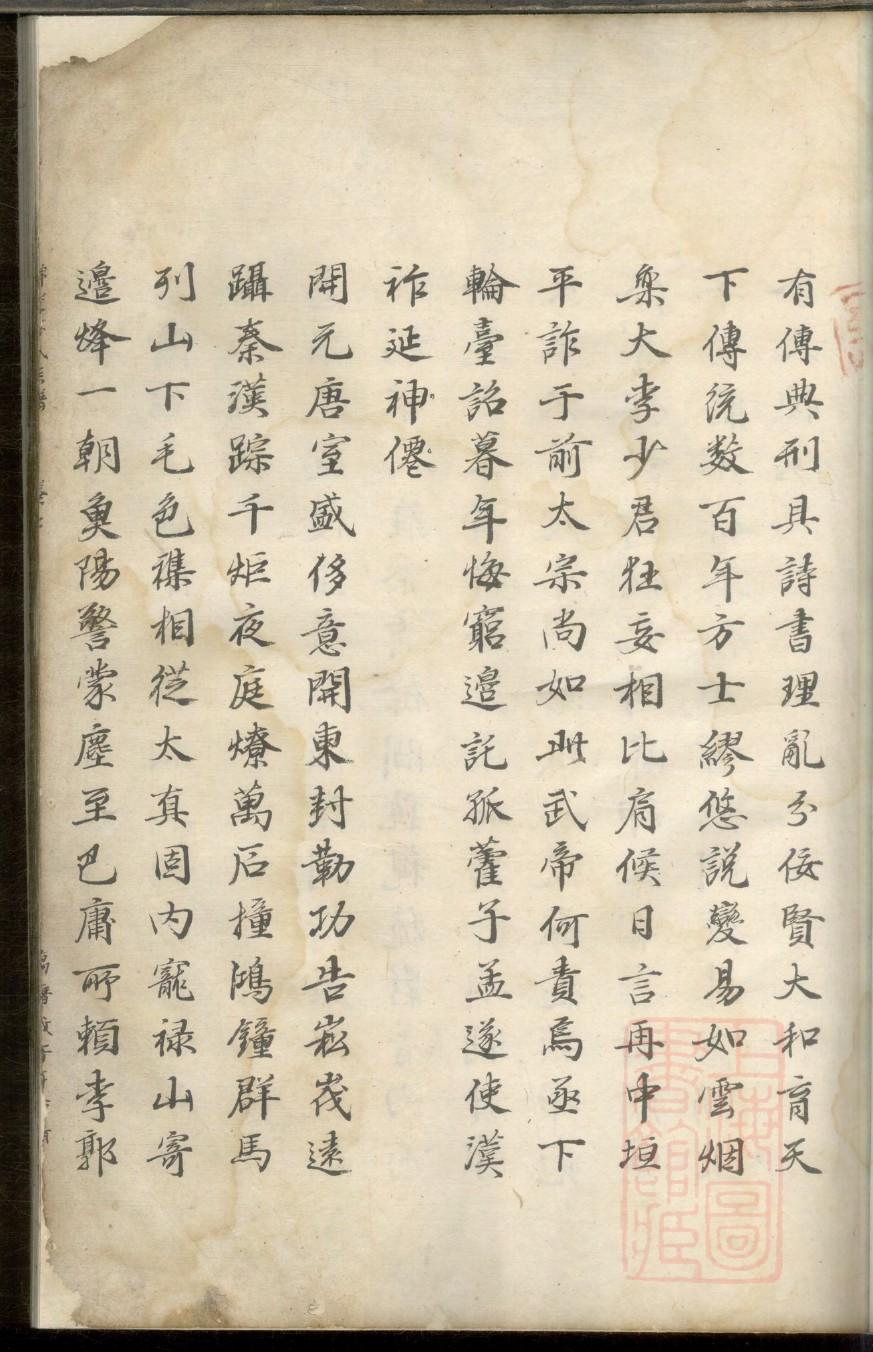 有傳典刑具詩書理亂分佞賢大和育天
下傳統数百年方士繆悠説變易如雲烟
欒大李少君狂妄相比肩候日言再中垣
平詐于前太宗尚如此武帝何責焉亟下
輪臺詔暮年悔窮邉託孤藿子孟遂使漢
祚延神僊
開元唐室盛侈意開東封勒功告崧峩遠
躡秦漢踪千炬夜庭燎萬石撞鴻鐘群馬
列山下毛色襍相従太真固内寵禄山寄
邉烽一朝奐陽警蒙塵至巴庸所頼李郭
上海圖
書館藏